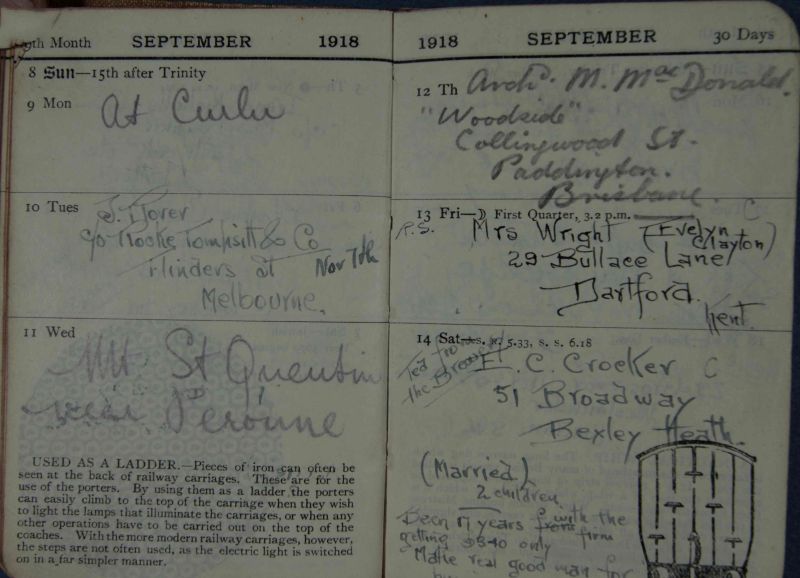 9th Month SEPTEMBER 1918
8 Sun—15th after Trinity
9 Mon
At Curlu
10 Tues
J. Plover
c/o Rooke Tompsitt & Co
Flinders st Nov 7th
Melbourne.
11 Wed
Mt St Quentin
near Peronne
USED AS A LADDER.—Pieces of iron can often be
seen at the back of railway carriages. These are for the
use of the porters. By using them as a ladder the porters
can easily climb to the top of the carriage when they wish
to light the lamps that illuminate the carriages, or when any
other operations have to be carried out on the top of the
coaches. With the more modern railway carriages, however,
the steps are not often used, as the electric light is switched
on in a far simpler manner.
1918 SEPTEMBER 30 Days
12 Th Archd. M. MacDonald.
"Woodside"
Collingwood St.
Paddington.
Brisbane.
13 Fri—☽ First Quarter, 3.2 p.m. C
R.S. Mrs Wright (Evelyn Clayton)
29 Bullace Lane
Dartford.
Kent.
14 Sat—s. r. 5.33, s. s. 6.18
Ted from the Broadway
E. C. Crocker C
51 Broadway
Bexley Heath.
(Married)
2 children
Been 17 years with the firm
getting only
Make real good man for